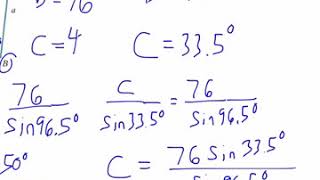 = 76
C=4 C = 33.5°
B
76/sin96.5° c/sin33.5° = 76/sin96.5°
50° C = 76 sin33.5°/sin96.5°